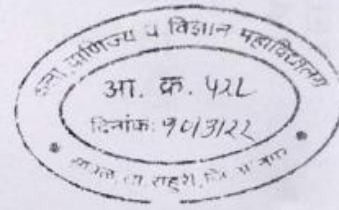 कला, वाणिज्य व विज्ञान महाविद्यालय
आ. क्र. ५२८
दिनांक: १०/३/२२
ता. राहुरी, जि. अ. नगर